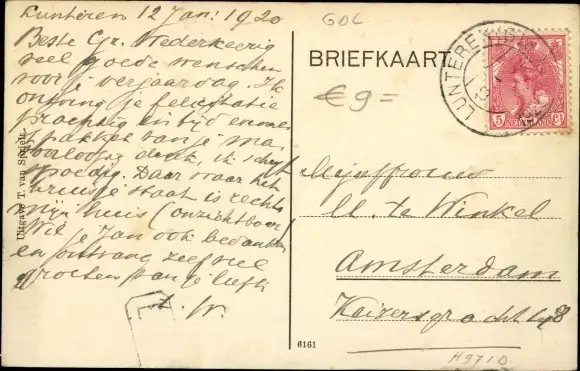 Lunteren 12 Jan: 1920
Beste Gr. Wederkeerig
veel goede wenschen
voor je verjaardag. Ik
ontving je felicitatie
prachtig en tijd en
pakket van je ma,
voorloopig dank, ik schrijf
spoedig. Daar waar het
kruisje staat is rechts
mijn huis (onzichtbaar)
Wil je Jan ook bedanken
en ontvang zelf vele
groeten van je liefh
t. W.
Uitgave T. van Spijett
GDL
BRIEFKAART
€ 9=
LUNTEREN
5 NEDERLAND Ct
Mejuffrouw
M. te Winkel
Amsterdam
Keizersgracht
6161
H9710